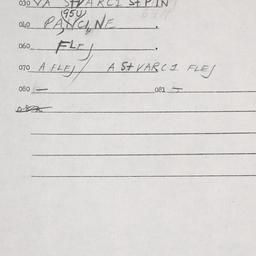 030 VA STVARCI STPIN
(95U)
040 PANCINE .
060 FLEJ .
070 A FLEJ / A STVARCI FLEJ
080 — 081 —